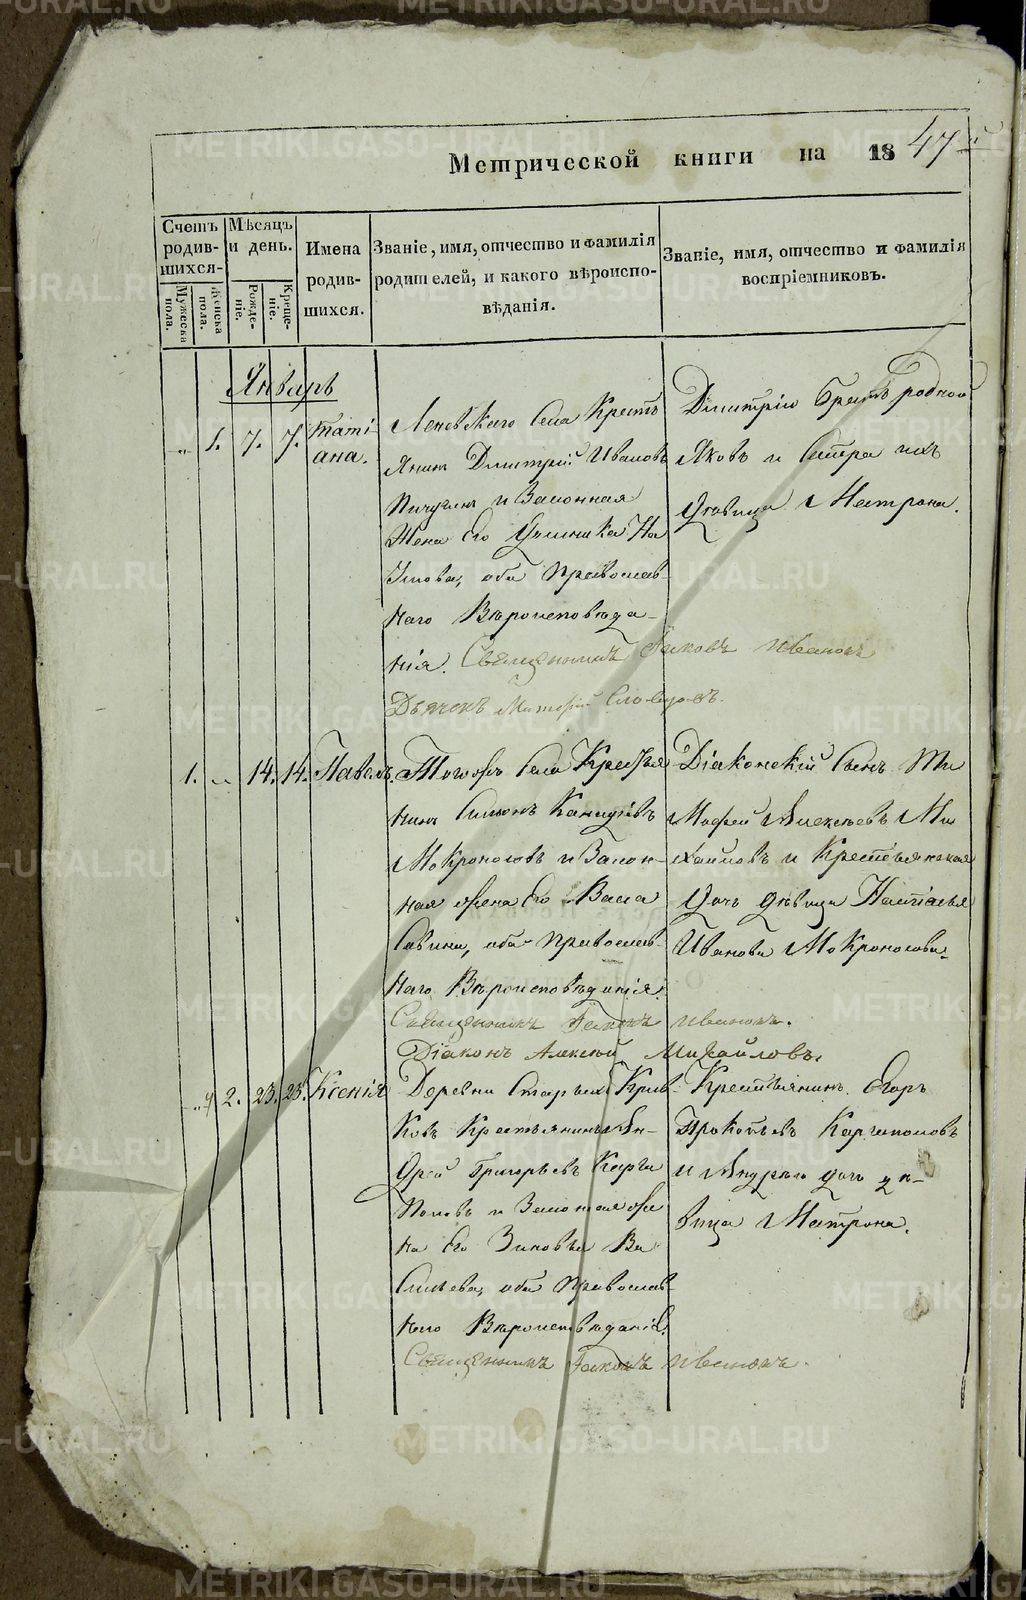 Метрической книги на 1847й
Счетъ родившихся
Мужеска пола.
Женска пола.
Мѣсяцъ и день.
Рожденіе.
Крещеніе.
Имена родившихся.
Званіе, имя, отчество и фамилія
родителей, и какого вѣроиспо-
вѣданія.
Званіе, имя, отчество и фамилія
воспріемниковъ.
Январь
„ 1. 7. 7. Таті-
ана.
Села Кресть
янинъ Димитрій Ивановъ
и Законная
Жена его На
умова, оба православ-
наго Вѣроисповѣда-
нія. Священникъ Іаковъ Ивановъ
Дьячекъ
Димитрію братъ родной
Яковъ и Сестра ихъ
дѣвица Матрона.
1. „ 14. 14. Павелъ.
Тогожъ Села Крестья
нинъ Симонъ
Мокроносовъ и Закон-
ная жена его Васса
Савина, оба православ-
наго Вѣроисповѣданія.
Священникъ Іаковъ Ивановъ.
Діаконъ Алексѣй Михайловъ.
Діаконскій Сынъ Ти
мофей Алексѣевъ Ми
хайловъ и Крестьянская
дочь дѣвица Наталья
Иванова Мокроносова.
„ 2. 23. 23. Ксенія
Деревни Старыхъ Крив-
ковъ Крестьянинъ Ан-
дрей Григорьевъ Карга
половъ и Законная же
на его Зиновья Ва
сильева, оба православ-
наго Вѣроисповѣданія.
Священникъ Іаковъ Ивановъ.
Крестьянинъ Егоръ
Прокопьевъ Каргаполовъ
и Андрѣя дочь дѣ-
вица Матрона.
METRIKI.GASO-URAL.RU